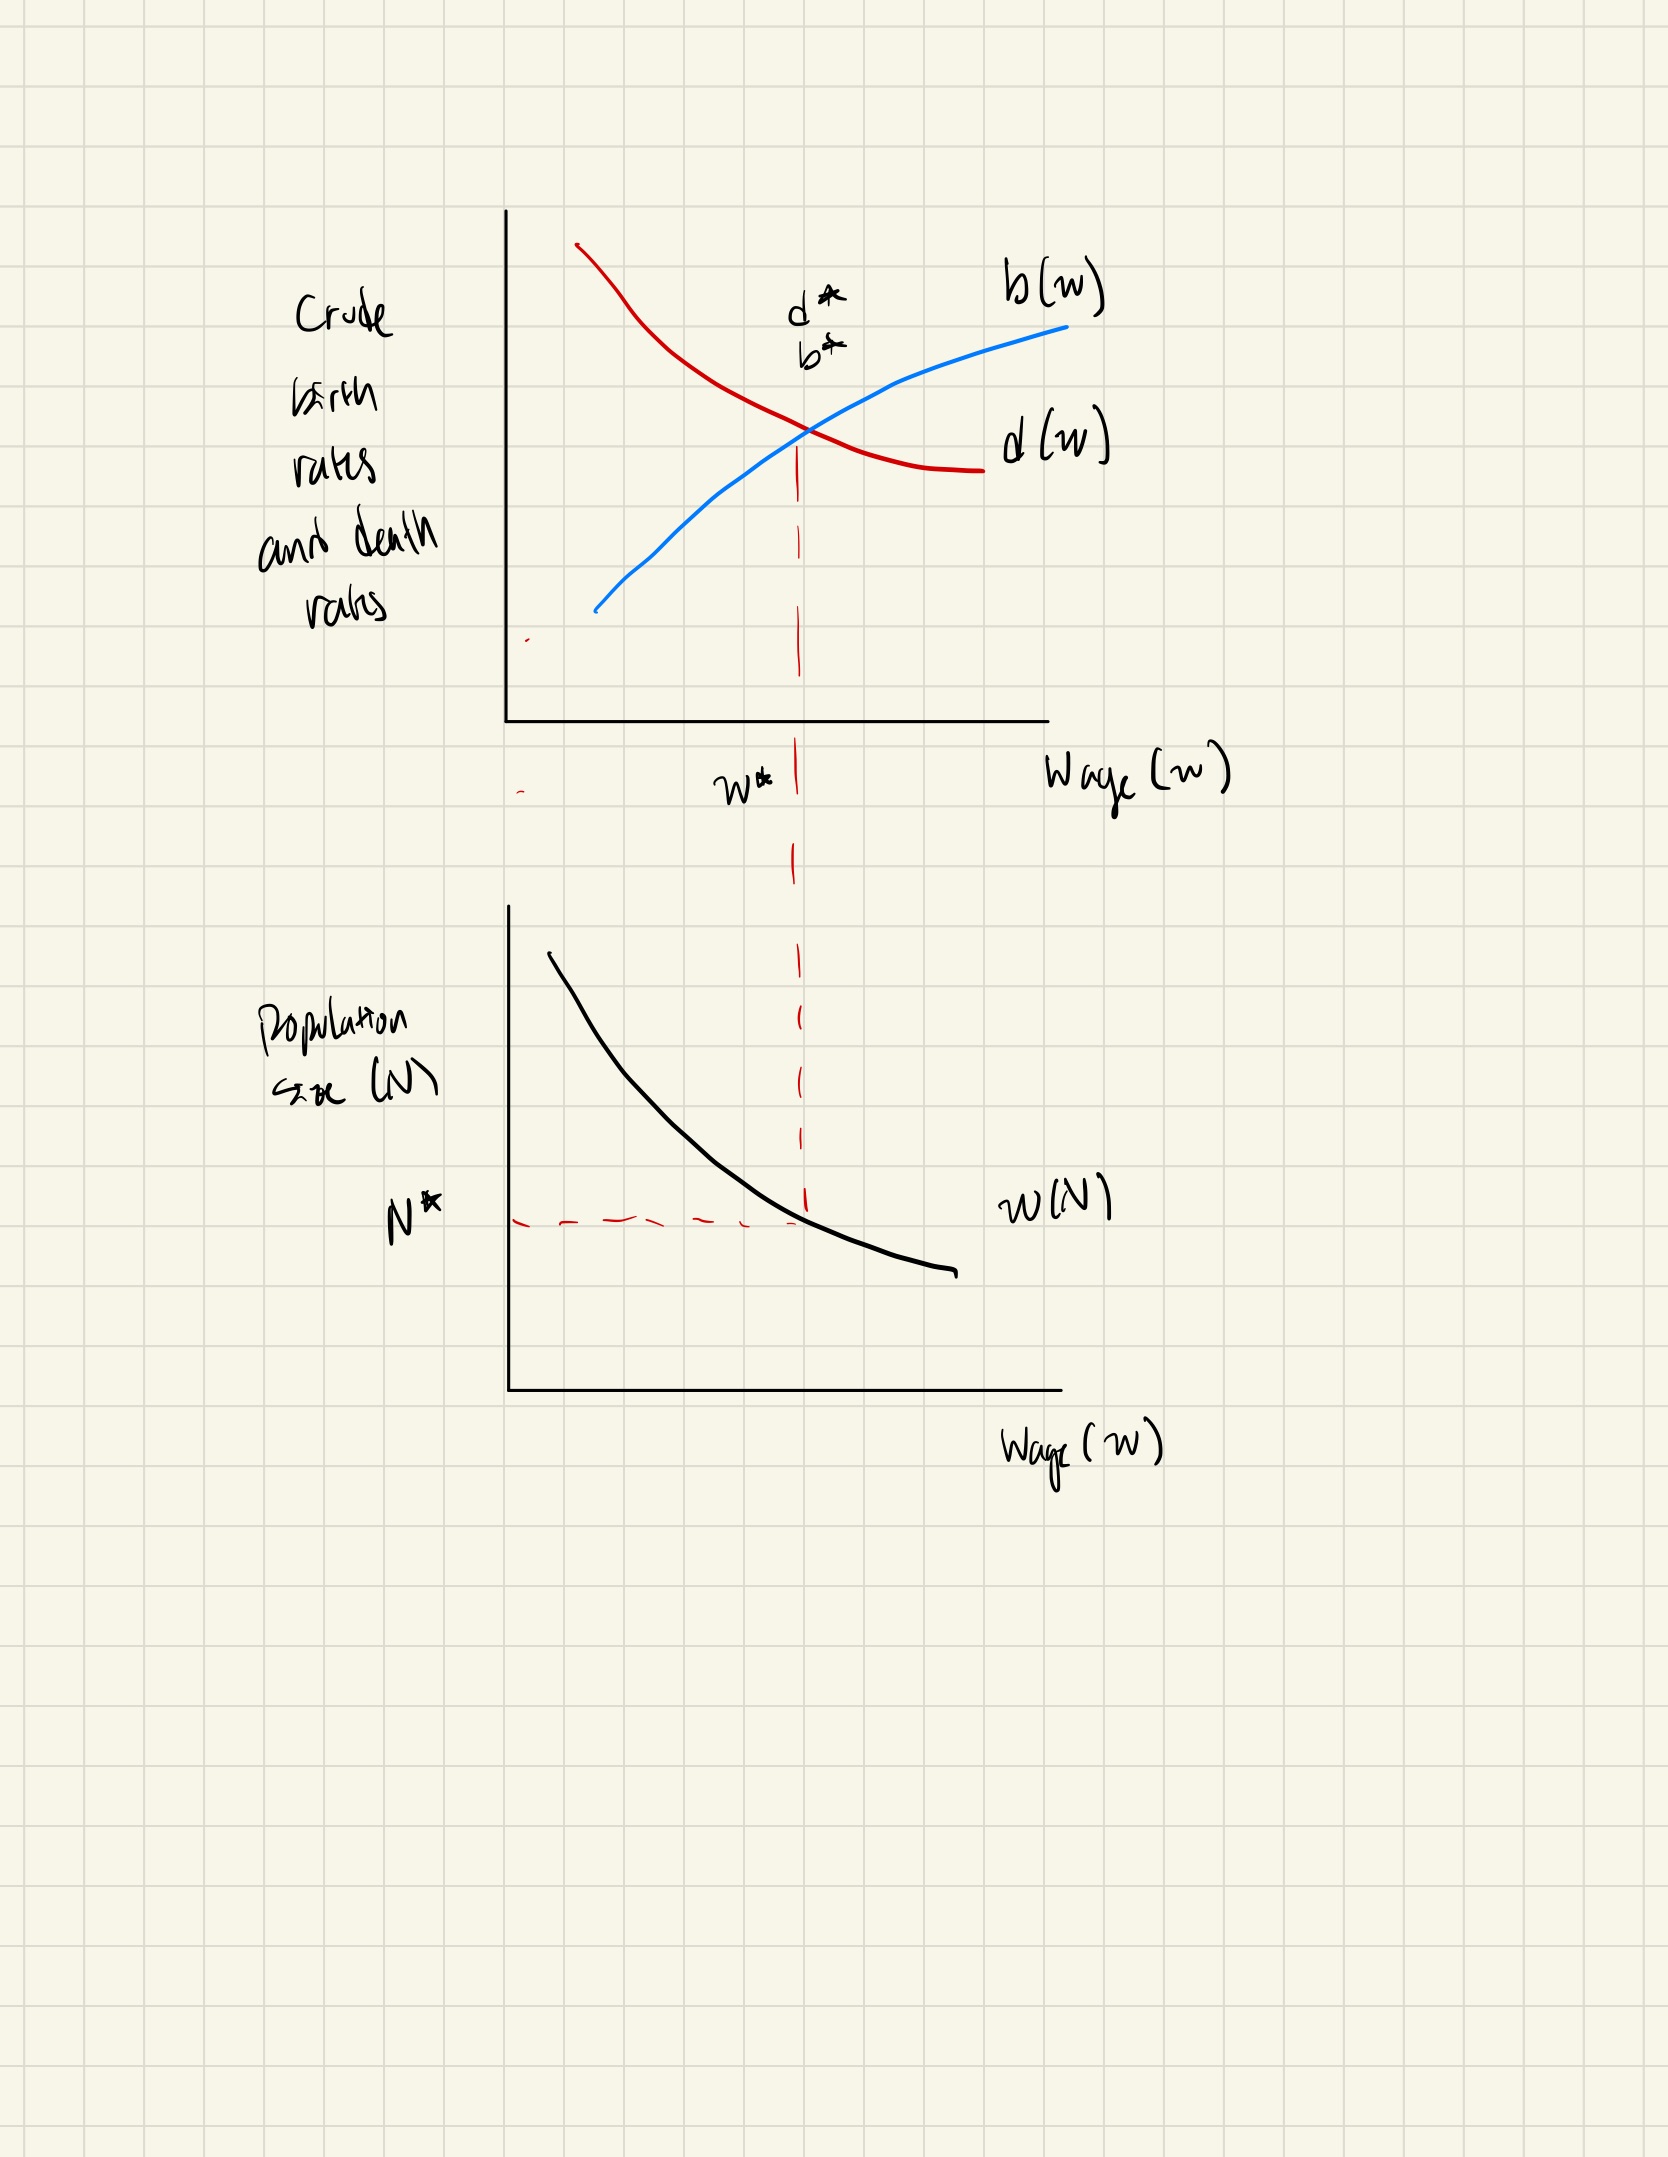 Crude
birth
rates
and death
rates
d*
b*
b(w)
d(w)
w*
Wage (w)
Population
size (N)
N*
w(N)
Wage (w)